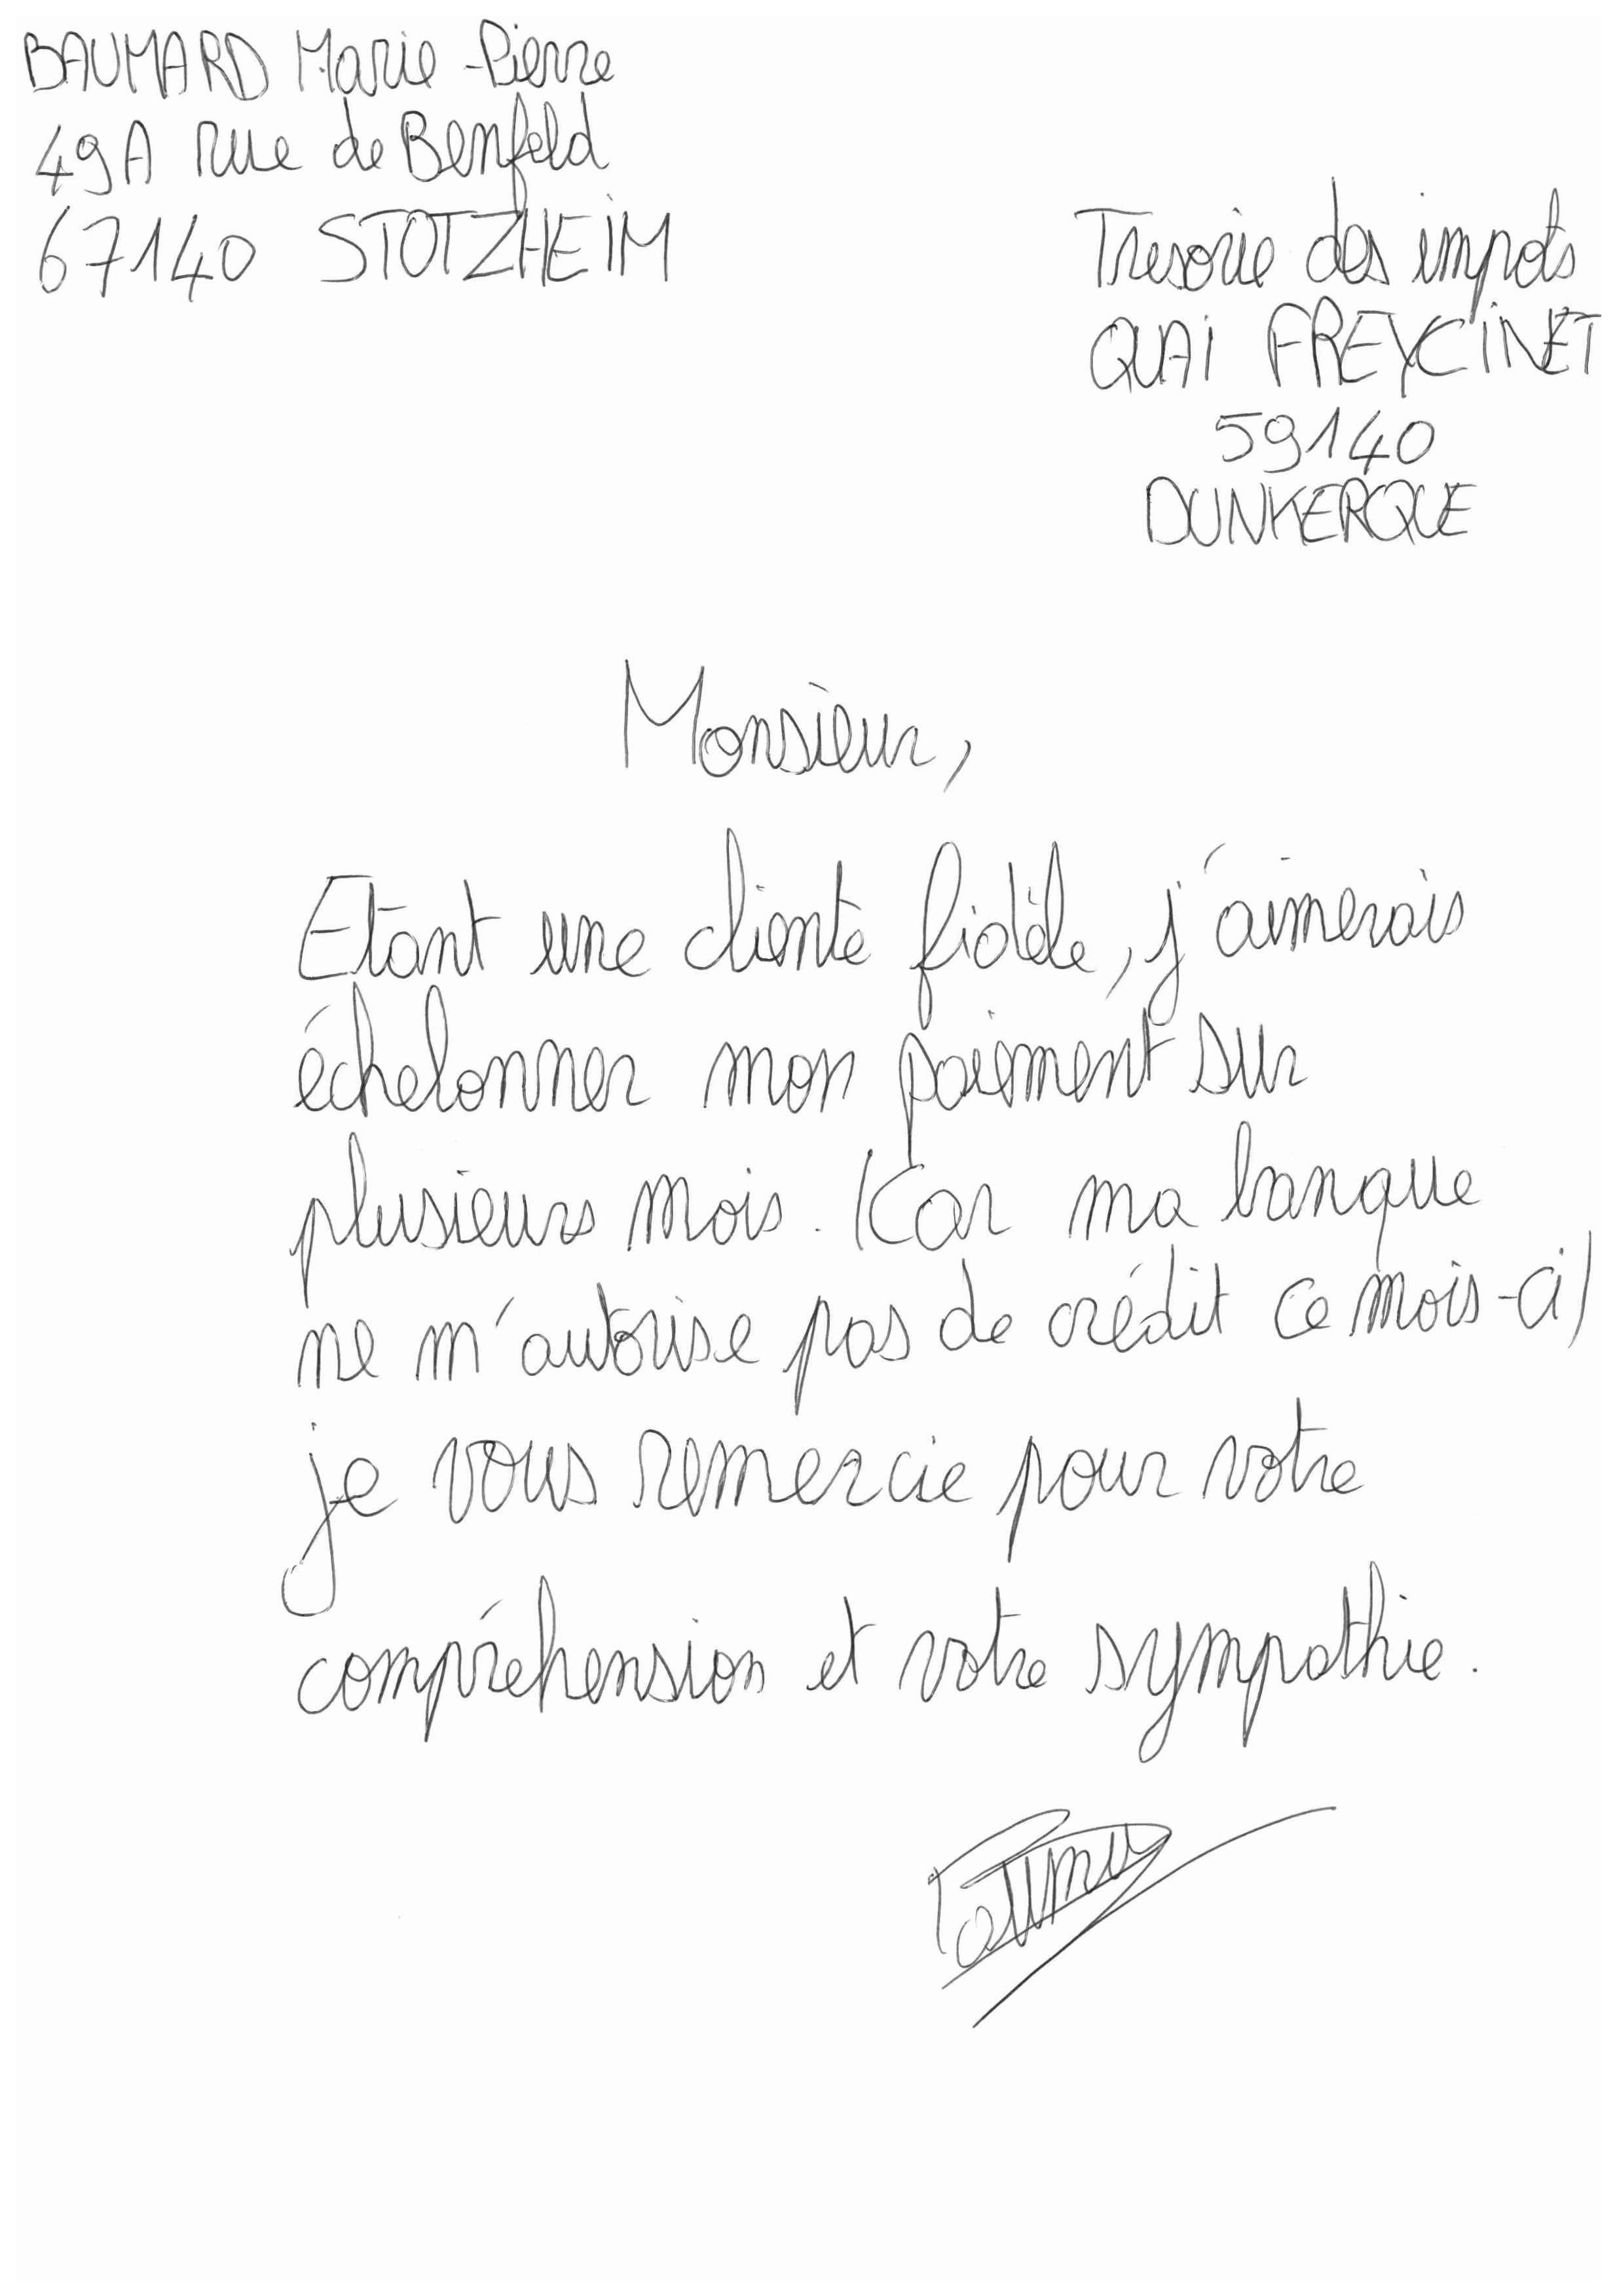 BAUMARD Marie-Pierre
49A rue de Benfeld
67140 STOTZHEIM
Tresorie des impots
QUAI FREYCINET
59140
DUNKERQUE
Monsieur,
Etant une cliente fidèle, j'aimerais
échelonner mon paiement sur
plusieurs mois. (Car ma banque
ne m'autorise pas de crédit ce mois-ci)
je vous remercie pour votre
compréhension et votre sympathie.